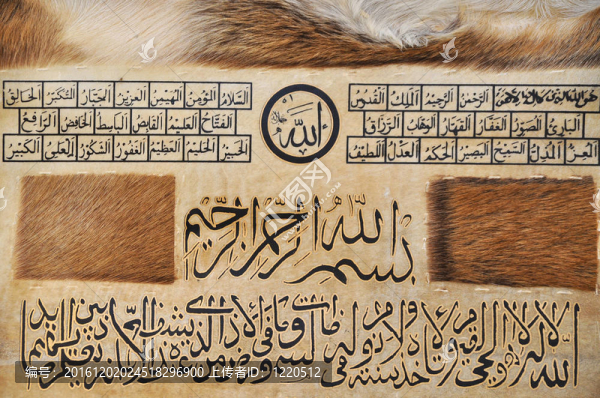 هو الله الذي لا اله الا هو الرحمن الرحيم الملك القدوس السلام المؤمن المهيمن العزيز الجبار المتكبر الخالق
البارئ المصور الغفار القهار الوهاب الرزاق الفتاح العليم القابض الباسط الخافض الرافع
المعز المذل السميع البصير الحكم العدل اللطيف الخبير الحليم العظيم الغفور الشكور العلي الكبير
الله
بسم الله الرحمن الرحيم
الله لا اله الا هو الحي القيوم لا تأخذه سنة ولا نوم له ما في السموات وما في الارض من ذا الذي يشفع عنده الا باذنه يعلم ما بين ايديهم
编号: 20161202024518296900 上传者ID: